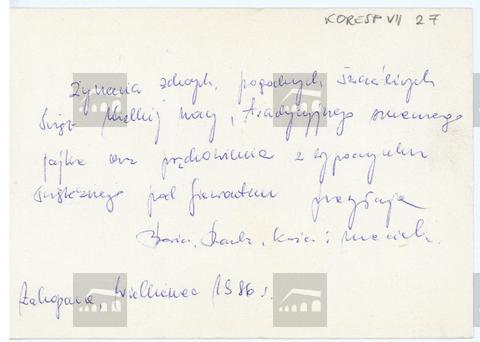 KORESP VII 27
Życzenia zdrowych, pogodnych, szczęśliwych
Świąt Wielkiej Nocy, tradycyjnego smacznego
jajka oraz pozdrowienia z wypoczynku
świątecznego pod Giewontem przesyłają
Kasia i Maciek.
Zakopane, Wielkanoc 1986 r.